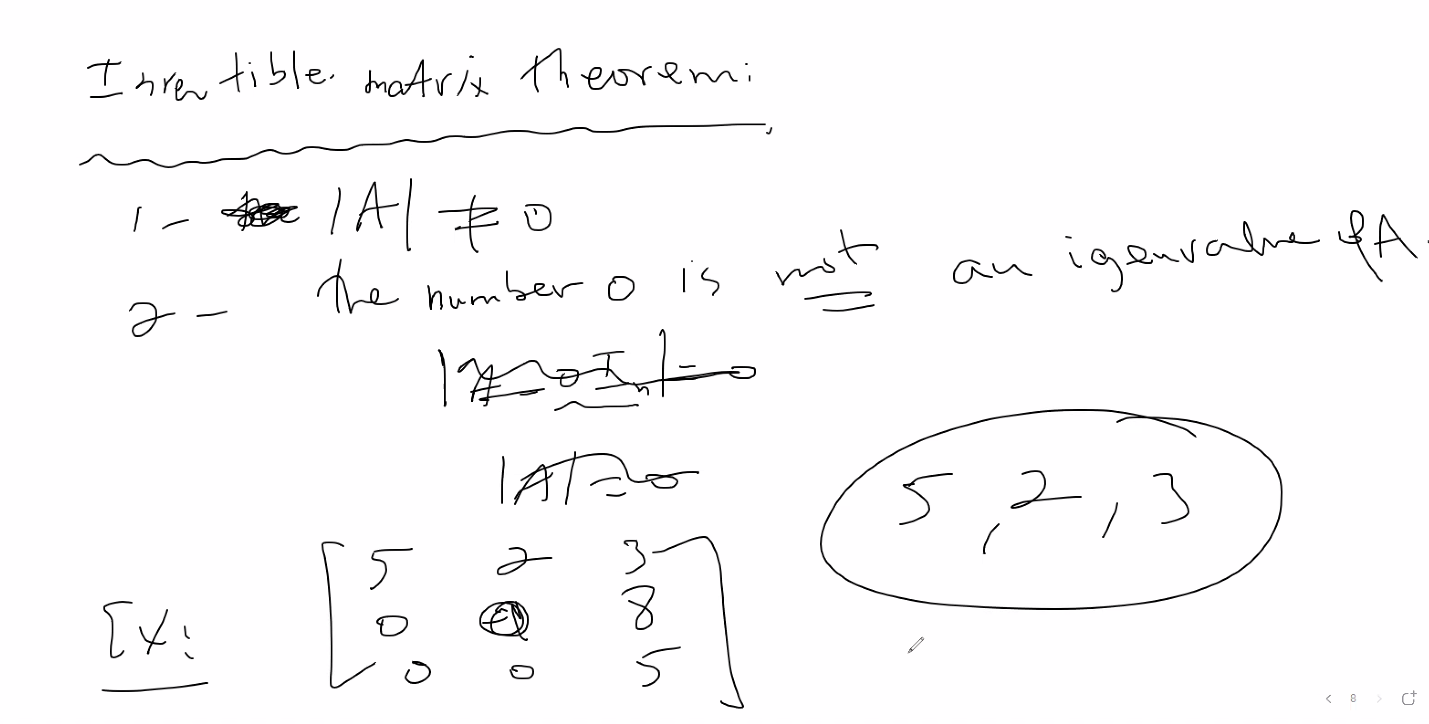 Invertible matrix theorem:
1- |A| ≠ 0
2- the number 0 is not an igenvalue of A.
|A - 0In| = 0
|A| = 0
5, 2, 3
5 2 3
Ex: 0 8
0 0 5
8